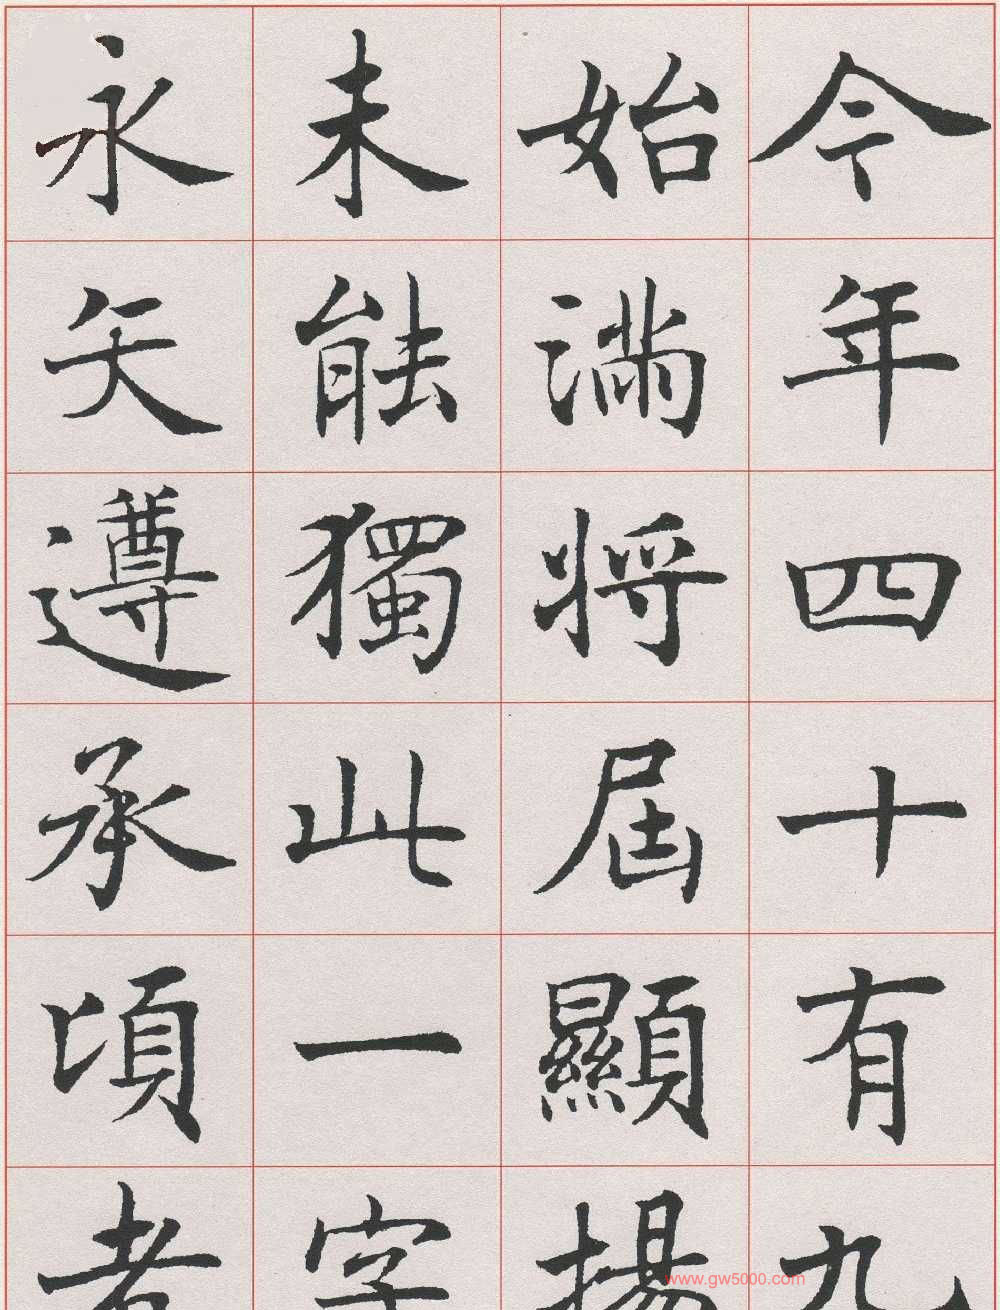 今年四十有九
始滿將屆顯揚
未能獨此一字
永矢遵承頃者
www.gw5000.com